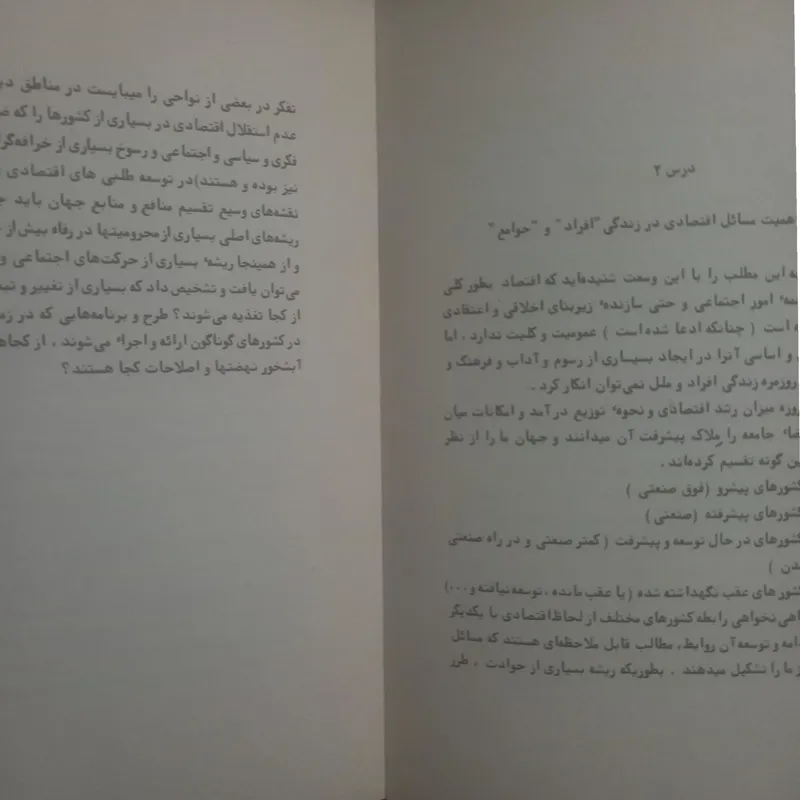 درس ۴
همیت مسائل اقتصادی در زندگی "افراد" و "جوامع"
به این مطلب را با این وسعت شنیده‌اید که اقتصاد بطور کلی
امور اجتماعی و حتی سازندهٔ زیربنای اخلاقی و اعتقادی
است ( چنانکه ادعا شده است ) عمومیت و کلیت ندارد . اما
و اساسی آنرا در ایجاد بسیاری از رسوم و آداب و فرهنگ و
روزمره زندگی افراد و ملل نمی‌توان انکار کرد .
روزه میزان رشد اقتصادی و نحوهٔ توزیع در آمد و امکانات میان
جامعه را ملاک پیشرفت آن میدانند و جهان ما را از نظر
ین گونه تقسیم کرده‌اند .
کشورهای پیشرو (فوق صنعتی )
کشورهای پیشرفته (صنعتی )
کشورهای در حال توسعه و پیشرفت ( کمتر صنعتی و در راه صنعتی
دن )
کشور های عقب نگهداشته شده ( یا عقب مانده ، توسعه نیافته و ...)
اهی نخواهی رابطه کشورهای مختلف از لحاظ اقتصادی با یکدیگر
دامه و توسعه آن روابط، مطالب قابل ملاحظه‌ای هستند که مسائل
ز ما را تشکیل میدهند . بطوریکه ریشه بسیاری از حوادث ، طرز
تفکر در بعضی از نواحی را میبایست در مناطق
عدم استقلال اقتصادی در بسیاری از کشورها را که
فکری و سیاسی و اجتماعی و رسوخ بسیاری از
نیز بوده و هستند)در توسعه طلبی های اقتصادی
نقشه‌های وسیع تقسیم منافع و منابع جهان باید
ریشه‌های اصلی بسیاری از محرومیتها در رفاه بیش از
و از همینجا ریشهٔ بسیاری از حرکت‌های اجتماعی و
می‌توان یافت و تشخیص داد که بسیاری از تغییر و
از کجا تغذیه می‌شوند؟ طرح و برنامه‌هایی که در
در کشورهای گوناگون ارائه و اجراء می‌شوند ، از
آبشخور نهضتها و اصلاحات کجا هستند ؟